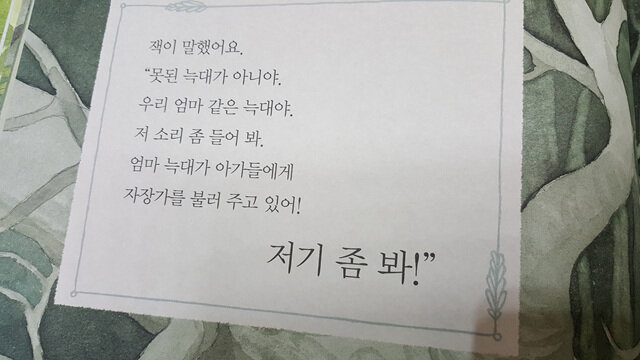 잭이 말했어요.
“못된 늑대가 아니야.
우리 엄마 같은 늑대야.
저 소리 좀 들어 봐.
엄마 늑대가 아가들에게
자장가를 불러 주고 있어!
저기 좀 봐!”